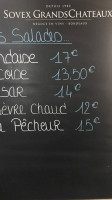 DEPUIS 1982
SOVEX GRANDSCHATEAUX
NÉGOCE DE VINS - BORDEAUX
s Salades
ndaise 17€
coise 13,50€
sar 14€
èvre Chaud 12€
u Pêcheur 15€